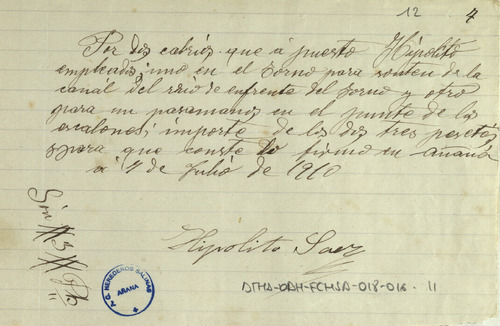 12 4
Por dos cabrios que á puesto Hipolito
empleados, uno en el torno para sosten de la
canal del rio de enfrente del torno y otro
para un pasamanos en el puente de los
escalones, importe de los dos tres pesetas,
y para que conste lo firmo en añana
a 4 de Julio de 1910
Hipolito Saez
A.C. HEREDEROS SALINAS
AÑANA
DTHA-DAH-FCHSA-018-016. 11